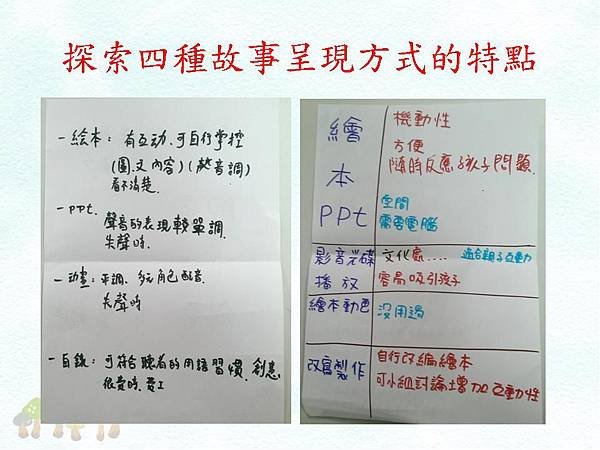 探索四種故事呈現方式的特點
一 絵本：有互动、可自行掌控
(圖.文內容)(聲音調)
看不清楚.
一 ppt.
聲音的表現較單調.
失聲時.
一 动畫：平調、多元角色配音.
失聲時
一 自錄：可符合聽者的用語習慣. 創意
很費時. 費工
繪本
機動性
方便
隨時反應孩子問題.
ppt
空間
需要電腦
影音光碟播放
文化處.... 適合親子互動
容易吸引孩子
繪本動色
沒用過
改寫製作
自行改編繪本
可小組討論增加互動性